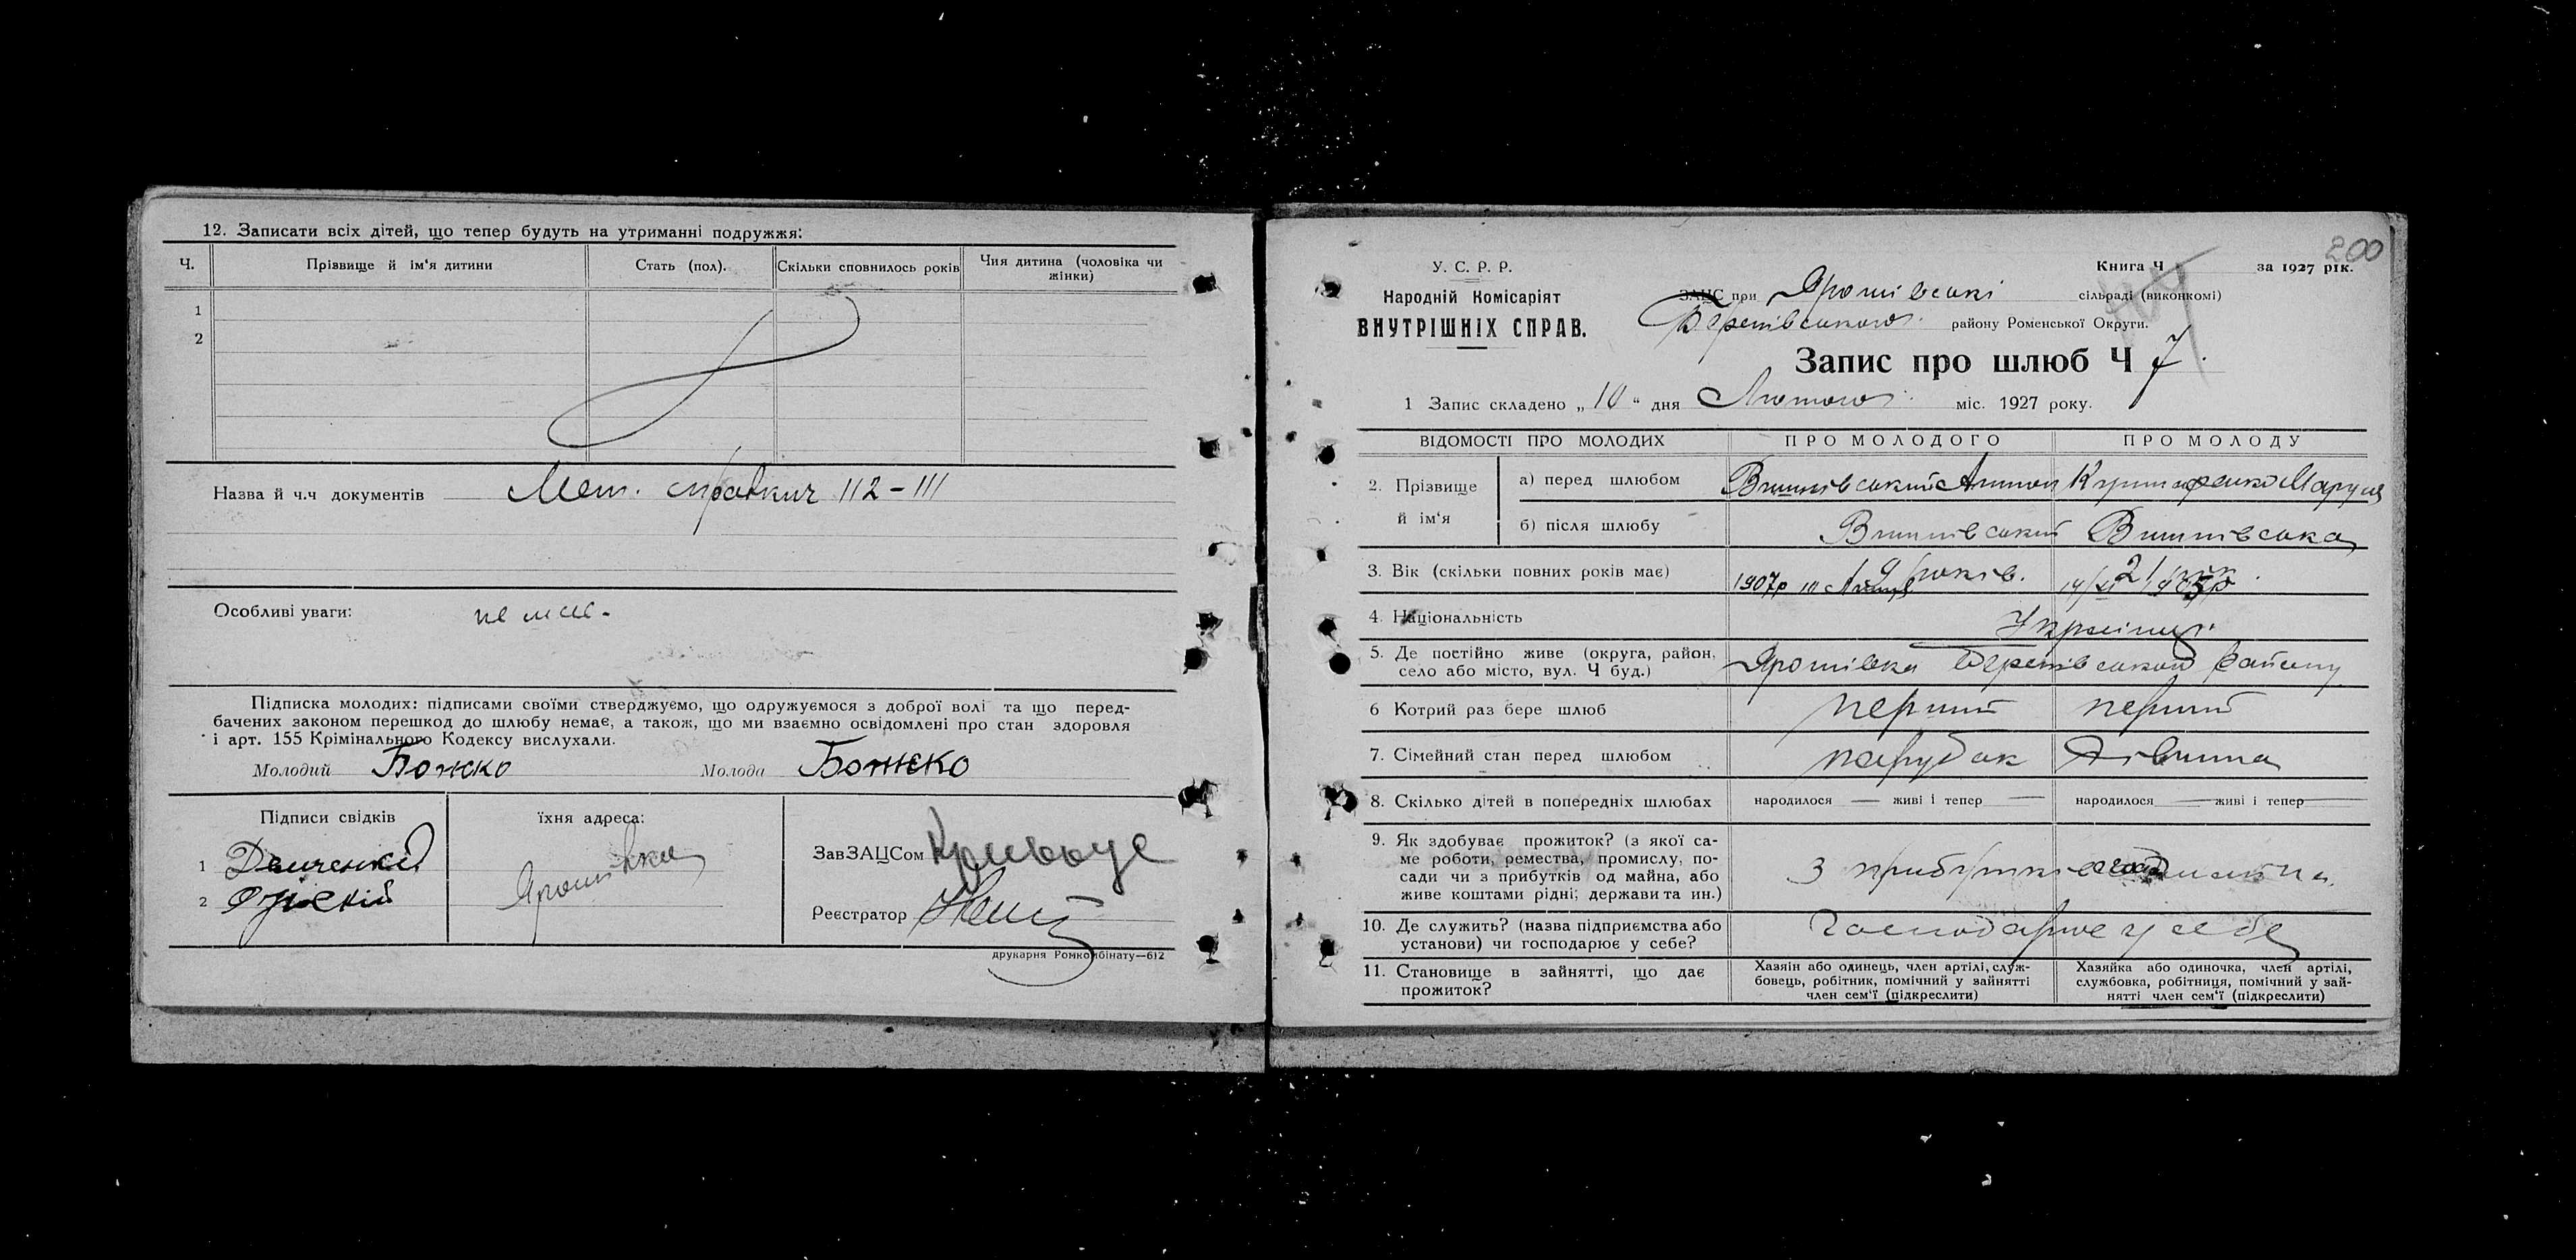 12. Записати всіх дітей, що тепер будуть на утриманні подружжя:
Ч. Прізвище й ім'я дитини Стать (пол). Скільки сповнилось років Чия дитина (чоловіка чи жінки)
1
2
Назва й ч.ч документів Мет. 112-111
Особливі уваги: немає.
Підписка молодих: підписами своїми стверджуємо, що одружуємося з доброї волі та що перед-
бачених законом перешкод до шлюбу немає, а також, що ми взаємно освідомлені про стан здоровля
і арт. 155 Крімінального Кодексу вислухали.
Молодий Божко Молода Божко
Підписи свідків їхня адреса:
1
2
Ярошівка
ЗавЗАЦСом
Реєстратор
друкарня Ромкомбінату—612
200
У. С. Р. Р.
Народній Комісаріят
ВНУТРІШНІХ СПРАВ.
Книга Ч за 1927 рік.
ЗАЦС при Ярошівські сільраді (виконкомі)
району Роменської Округи.
Запис про шлюб Ч 7.
1 Запис складено „10" дня Лютого міс. 1927 року.
ВІДОМОСТІ ПРО МОЛОДИХ ПРО МОЛОДОГО ПРО МОЛОДУ
2. Прізвище й ім'я
а) перед шлюбом Маруся
б) після шлюбу
3. Вік (скільки повних років має) 19 років. 21
1907р
4. Національність Українці
5. Де постійно живе (округа, район,
село або місто, вул. Ч буд.) Ярошівка району
6 Котрий раз бере шлюб перший перший
7. Сімейний стан перед шлюбом парубак дівчина
8. Скілько дітей в попередніх шлюбах народилося — живі і тепер — народилося — живі і тепер —
9. Як здобуває прожиток? (з якої са-
ме роботи, ремества, промислу, по-
сади чи з прибутків од майна, або
живе коштами рідні; держави та ин.)
з прибутків
10. Де служить? (назва підприємства або
установи) чи господарює у себе?
Господарює у себе
11. Становище в зайнятті, що дає
прожиток?
Хазяін або одинець, член артілі, служ-
бовець, робітник, помічний у зайнятті
член сем'ї (підкреслити)
Хазяйка або одиночка, член артілі,
службовка, робітниця, помічний у зай-
нятті член сем'ї (підкреслити)